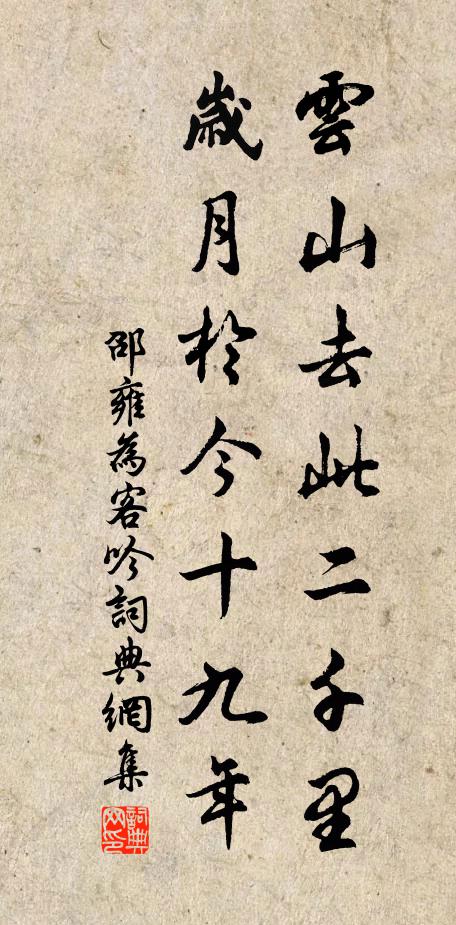 雲山去此二千里
歲月於今十九年
邵雍為客吟詞典網集
詞典网印